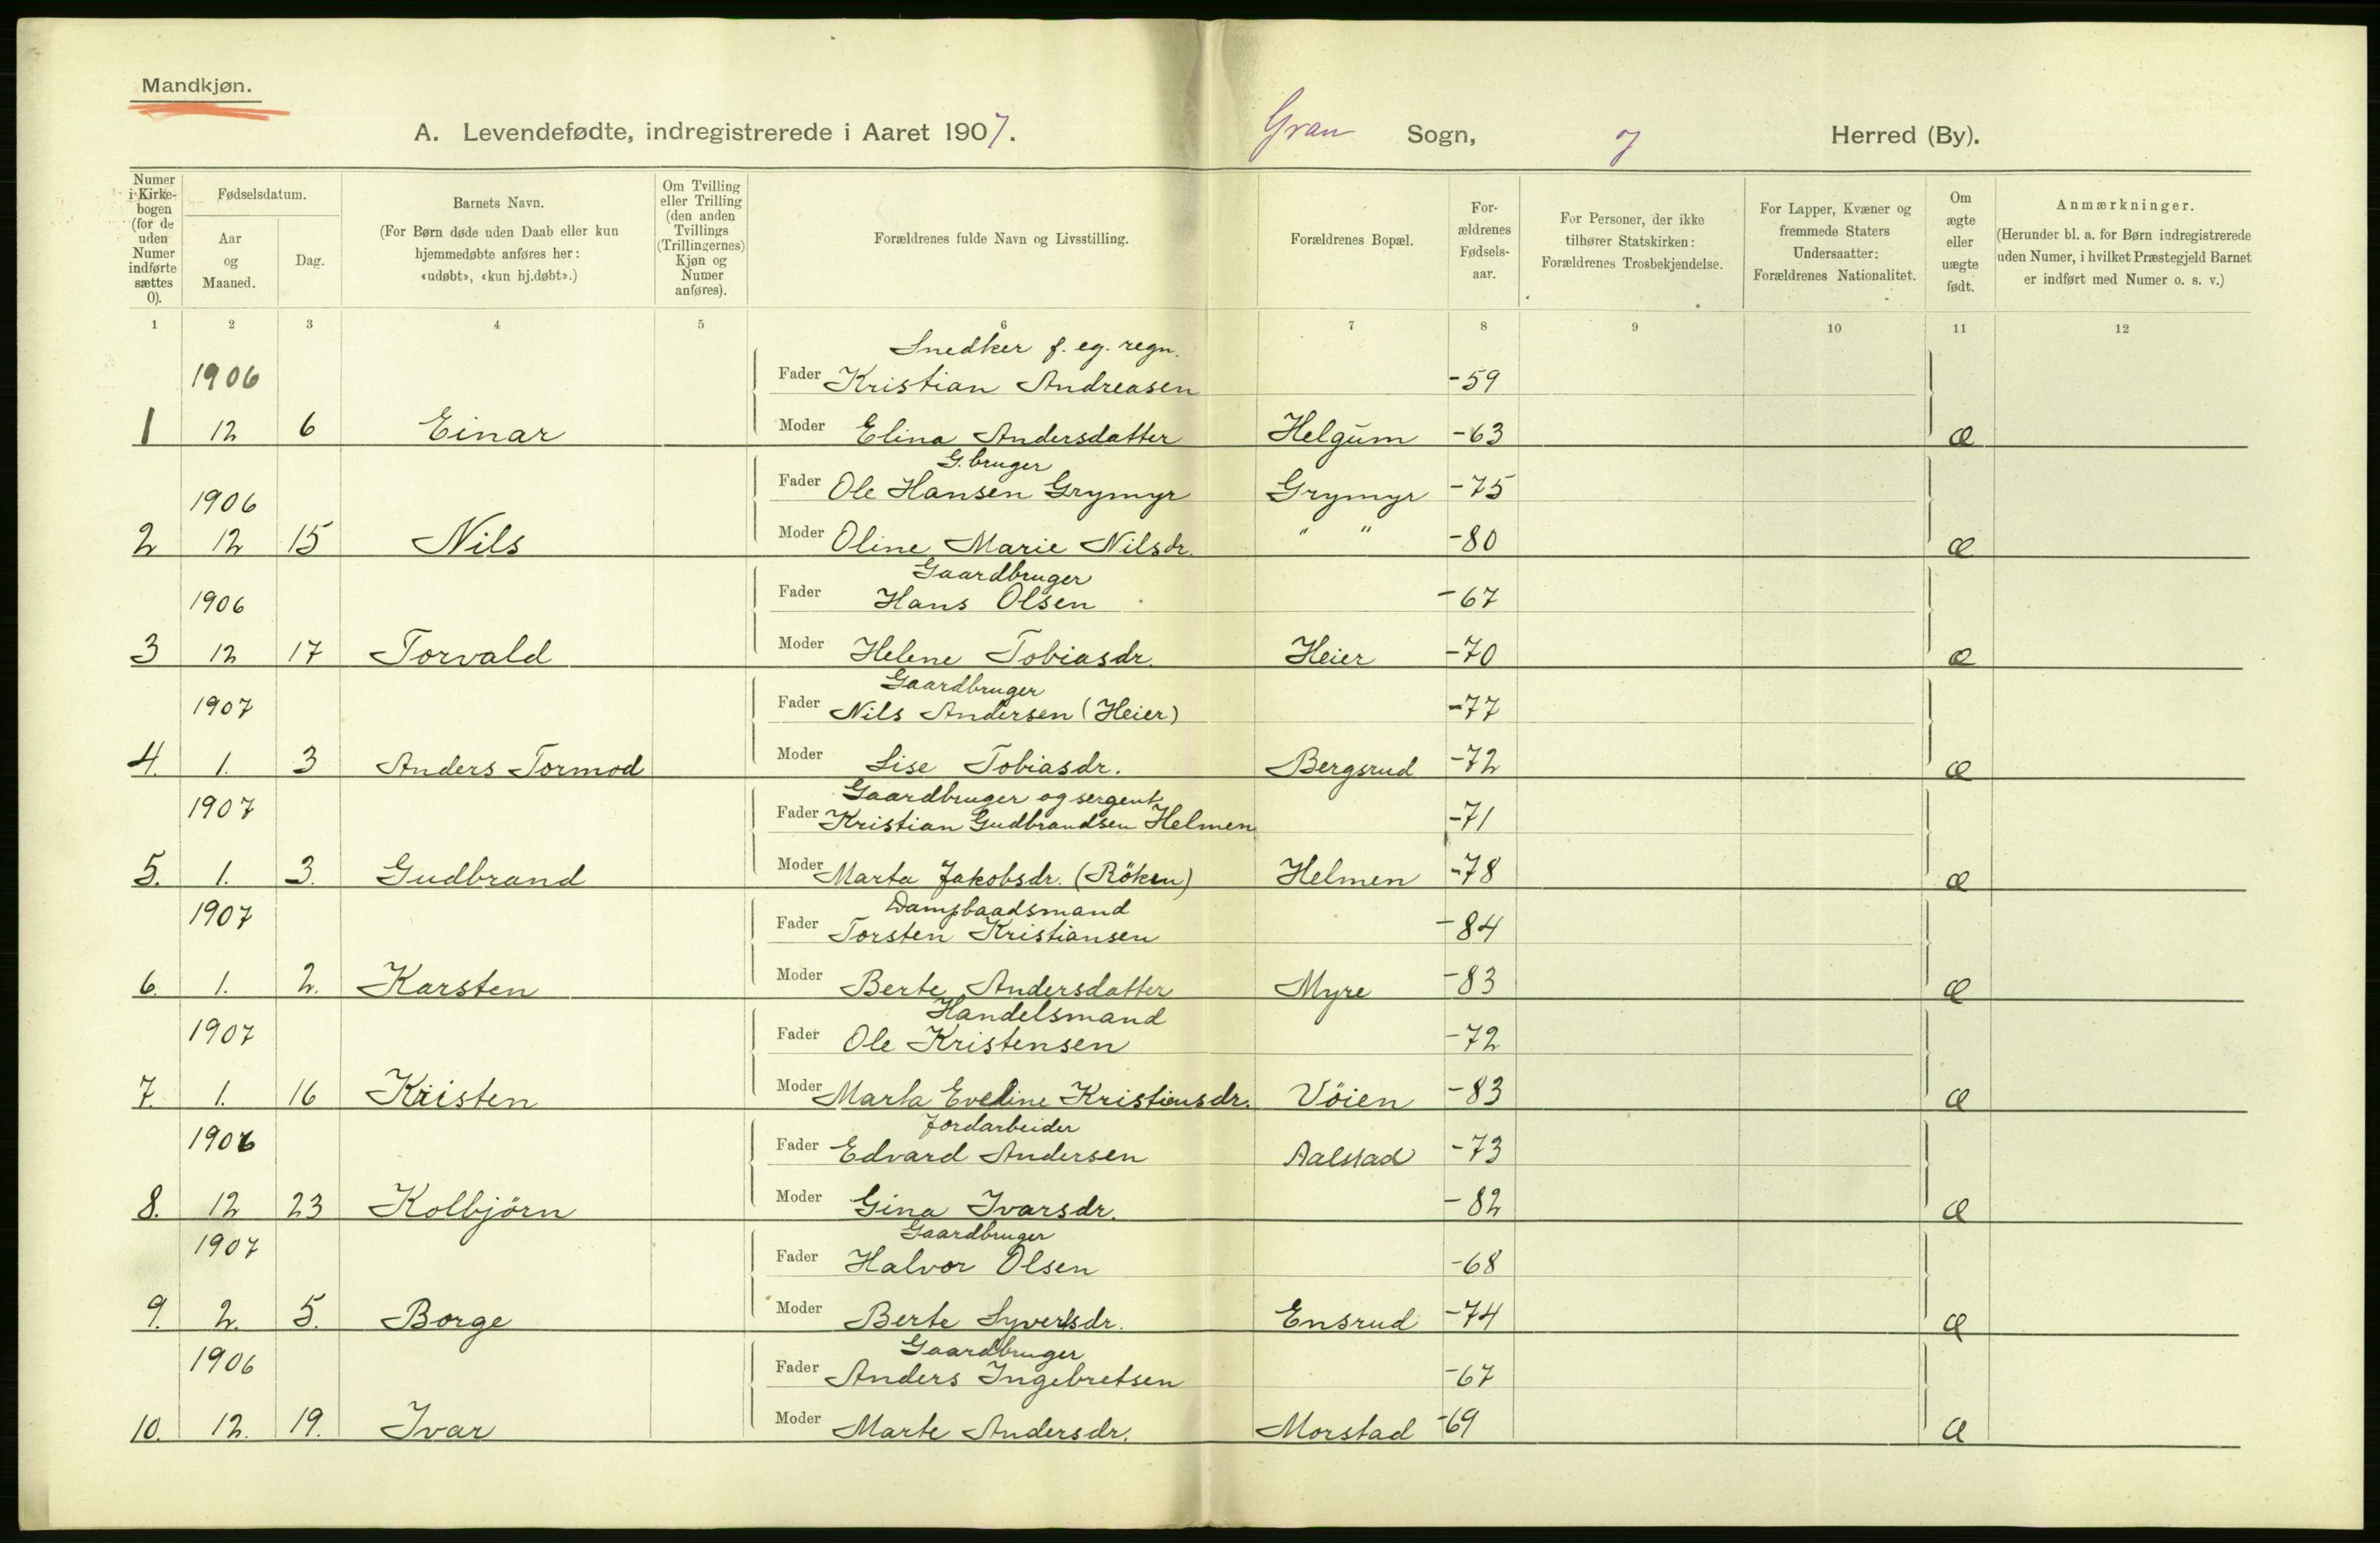 Mandkjøn.
A. Levendefødte, indregistrerede i Aaret 1907. Gran Sogn, Herred (By).
Numer i Kirke-bogen (for de uden Numer indførte sættes 0).
Fødselsdatum.
Aar og Maaned.
Dag.
Barnets Navn.
(For Børn døde uden Daab eller kun hjemmedøbte anføres her: «udøbt», «kun hj.døbt».)
Om Tvilling eller Trilling (den anden Tvillings (Trillingernes) Kjøn og Numer anføres).
Forældrenes fulde Navn og Livsstilling.
Forældrenes Bopæl.
For-ældrenes Fødsels-aar.
For Personer, der ikke tilhører Statskirken: Forældrenes Trosbekjendelse.
For Lapper, Kvæner og fremmede Staters Undersaatter: Forældrenes Nationalitet.
Om ægte eller uægte født.
Anmærkninger.
(Herunder bl. a. for Børn indregistrerede uden Numer, i hvilket Præstegjeld Barnet er indført med Numer o. s. v.)
1 2 3 4 5 6 7 8 9 10 11 12
Snedker f. eg. regn.
1906 Fader Kristian Andreasen -59
1 12 6 Einar Moder Elina Andersdatter Helgum -63 Æ
G.bruger
1906 Fader Ole Hansen Grymyr Grymyr -75
2 12 15 Nils Moder Oline Marie Nilsdr. " " -80 Æ
Gaardbruger
1906 Fader Hans Olsen -67
3 12 17 Torvald Moder Helene Tobiasdr. Heier -70 Æ
Gaardbruger
1907 Fader Nils Andersen (Heier) -77
4. 1. 3 Anders Tormod Moder Lise Tobiasdr. Bergsrud -72 Æ
Gaardbruger og sergent
1907 Fader Kristian Gudbrandsen Helmen -71
5. 1. 3. Gudbrand Moder Marta Jakobsdr. (Röken) Helmen -78 Æ
Dampbaadsmand
1907 Fader Torsten Kristiansen -84
6. 1. 2. Karsten Moder Berte Andersdatter Myre -83 Æ
Handelsmand
1907 Fader Ole Kristensen -72
7. 1. 16 Kristen Moder Marta Eveline Kristiansdr. Vöien -83 Æ
Jordarbeider
1906 Fader Edvard Andersen Aalstad -73
8. 12 23 Kolbjörn Moder Gina Ivarsdr. -82 Æ
Gaardbruger
1907 Fader Halvor Olsen -68
9. 2. 5. Borge Moder Berte Syversdr. Ensrud -74 Æ
Gaardbruger
1906 Fader Anders Ingebretsen -67
10. 12. 19. Ivar Moder Marte Andersdr. Morstad -69 Æ